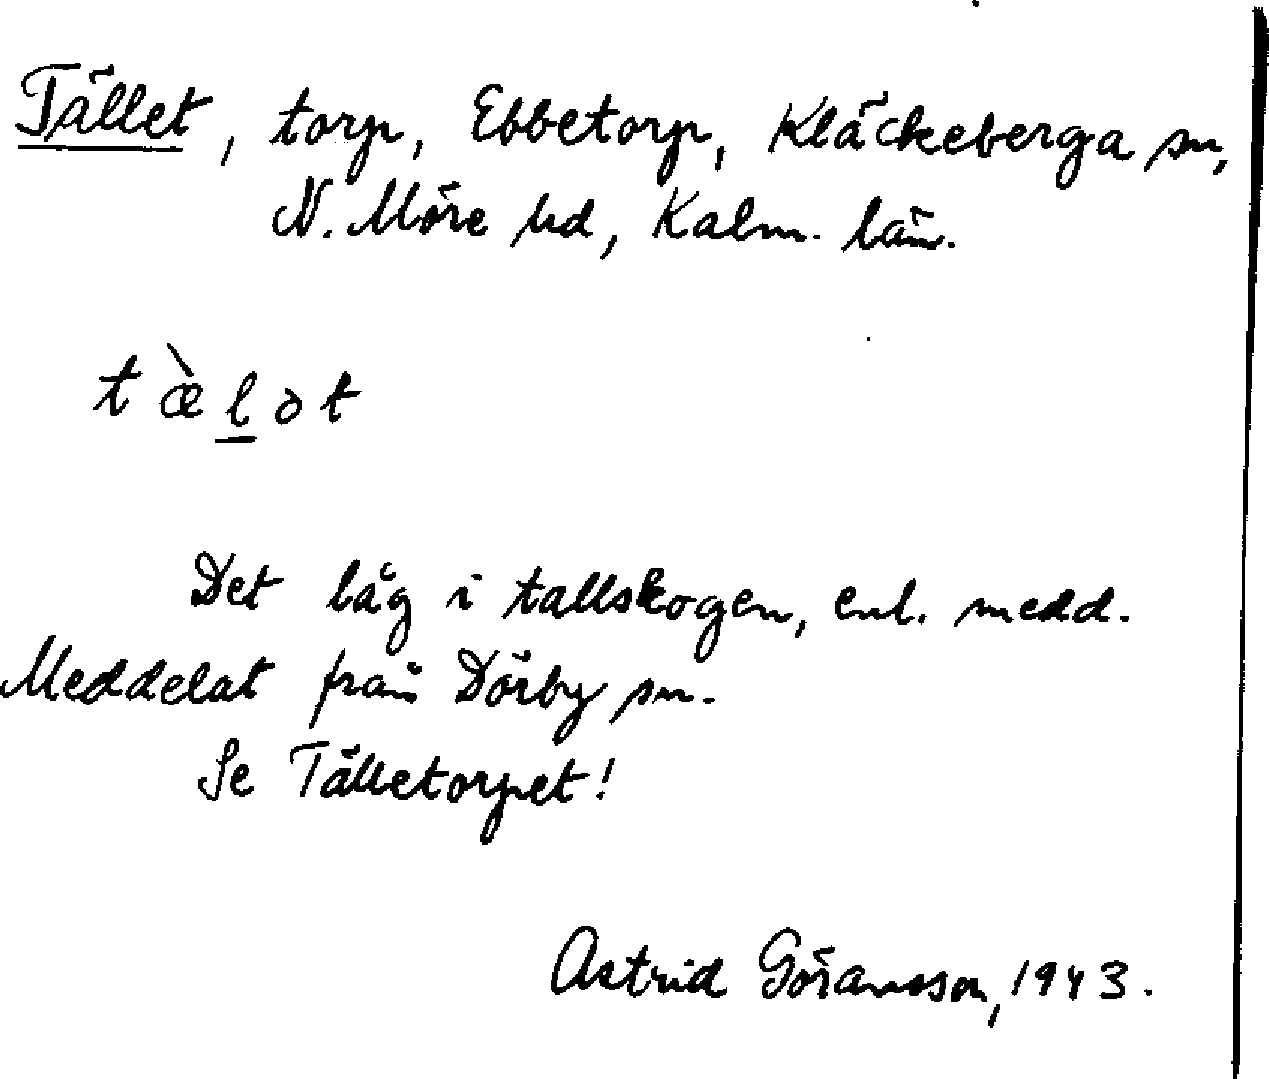 Tället, torp, Ebbetorp, Kläckeberga sn,
N. Möre hd, Kalm. län.
t æ̀ l̲ ə t
Det låg i tallskogen, enl. medd.
Meddelat från Dörby sn.
Se Tälletorpet!
Astrid Göransson, 1943.